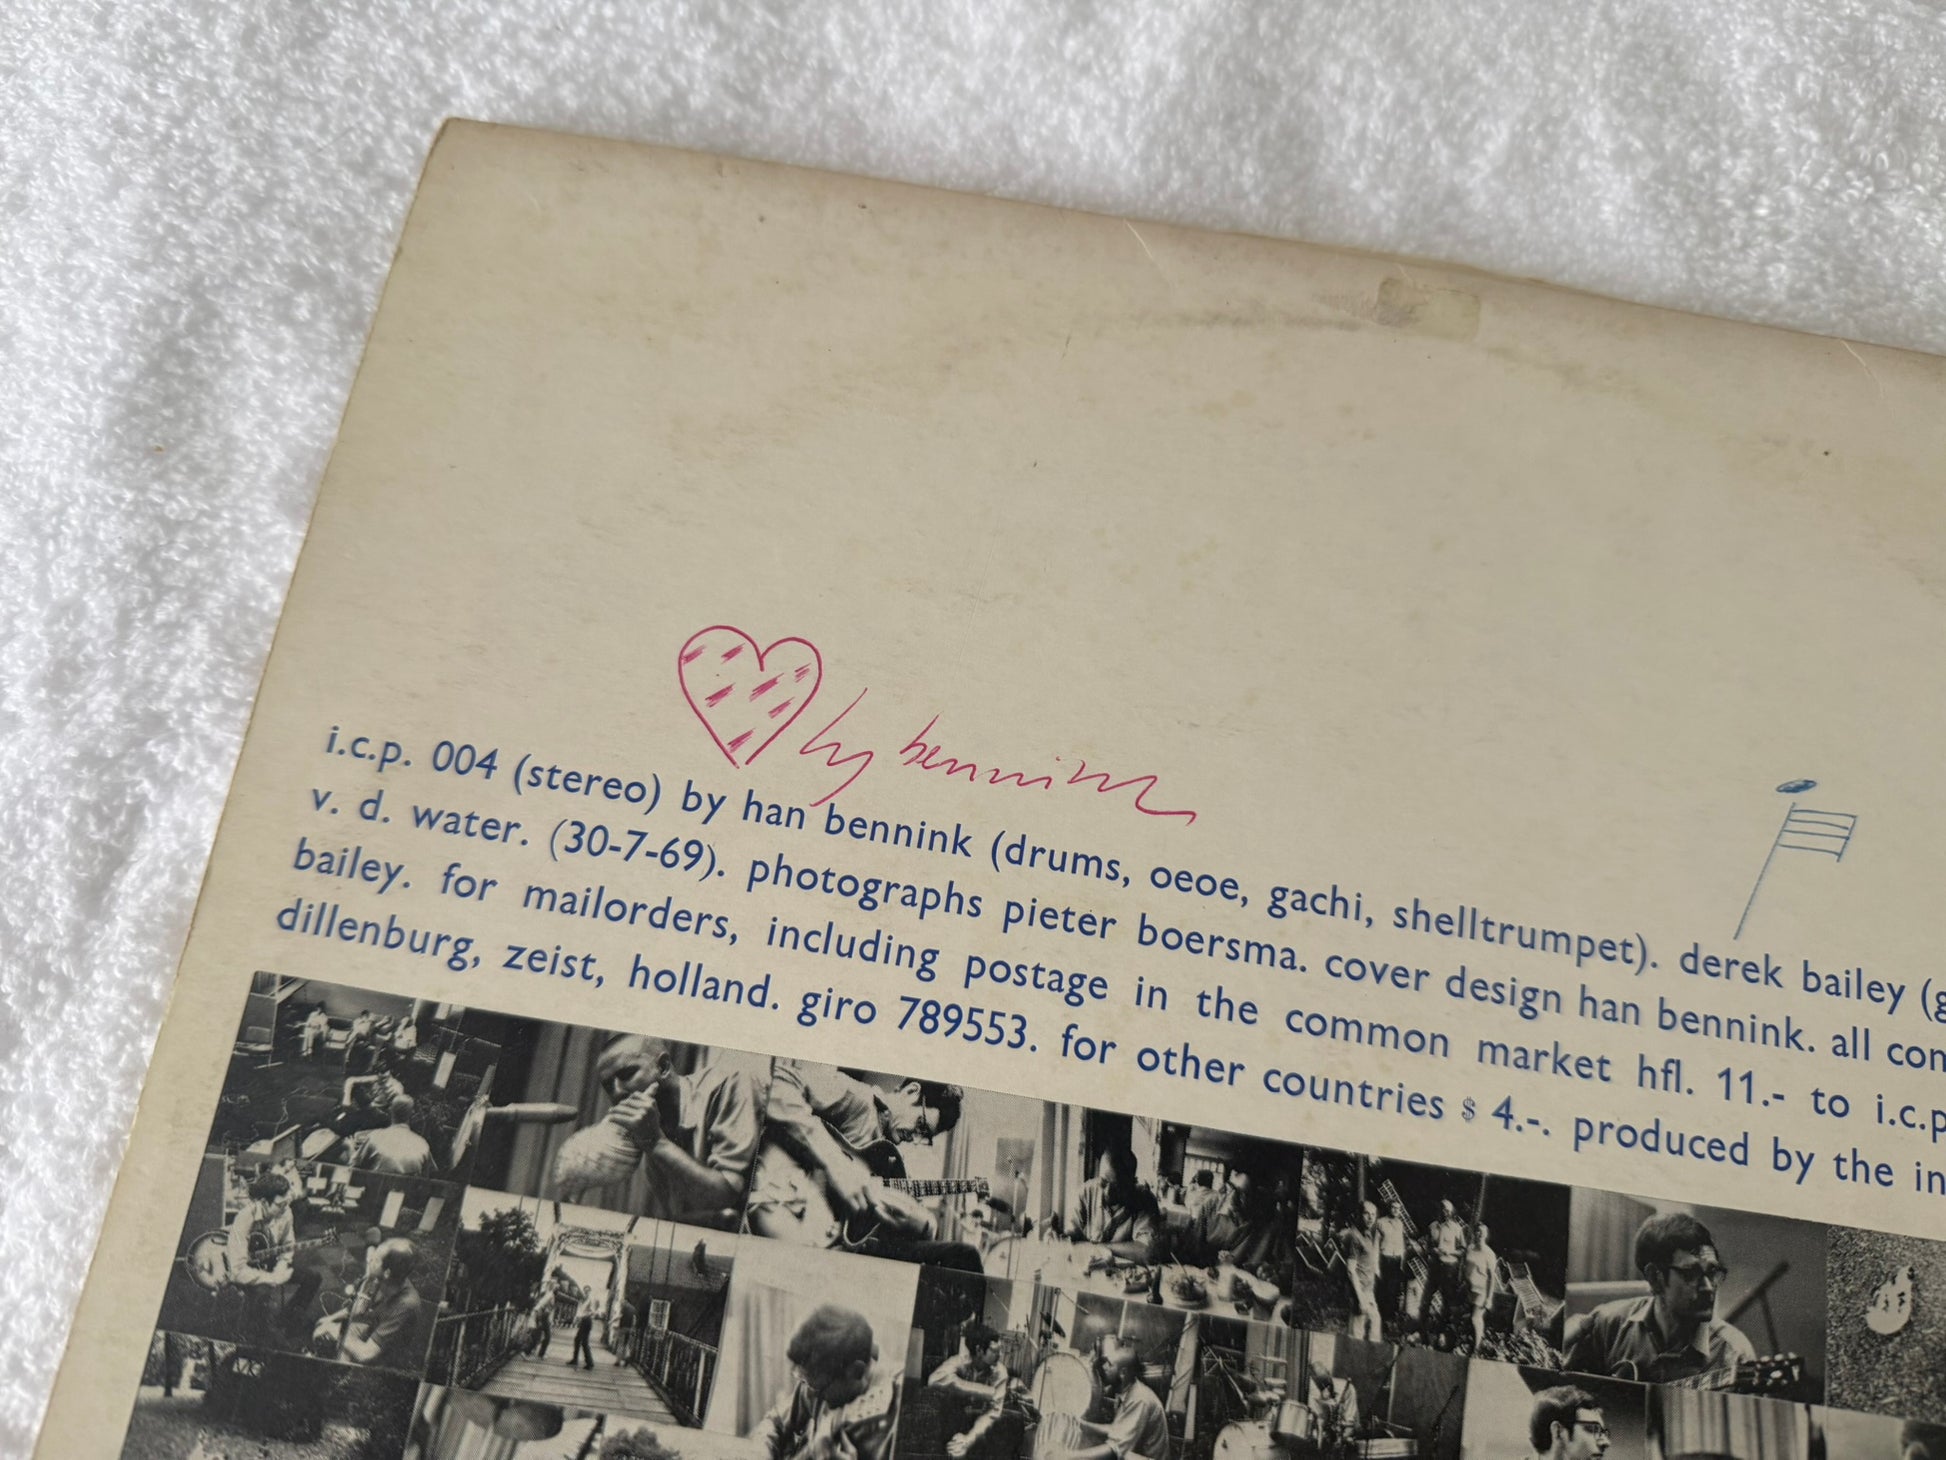 by bennink
i.c.p. 004 (stereo) by han bennink (drums, oeoe, gachi, shelltrumpet). derek bailey (g
v. d. water. (30-7-69). photographs pieter boersma. cover design han bennink. all com
bailey. for mailorders, including postage in the common market hfl. 11.- to i.c.p
dillenburg, zeist, holland. giro 789553. for other countries $ 4.-. produced by the in